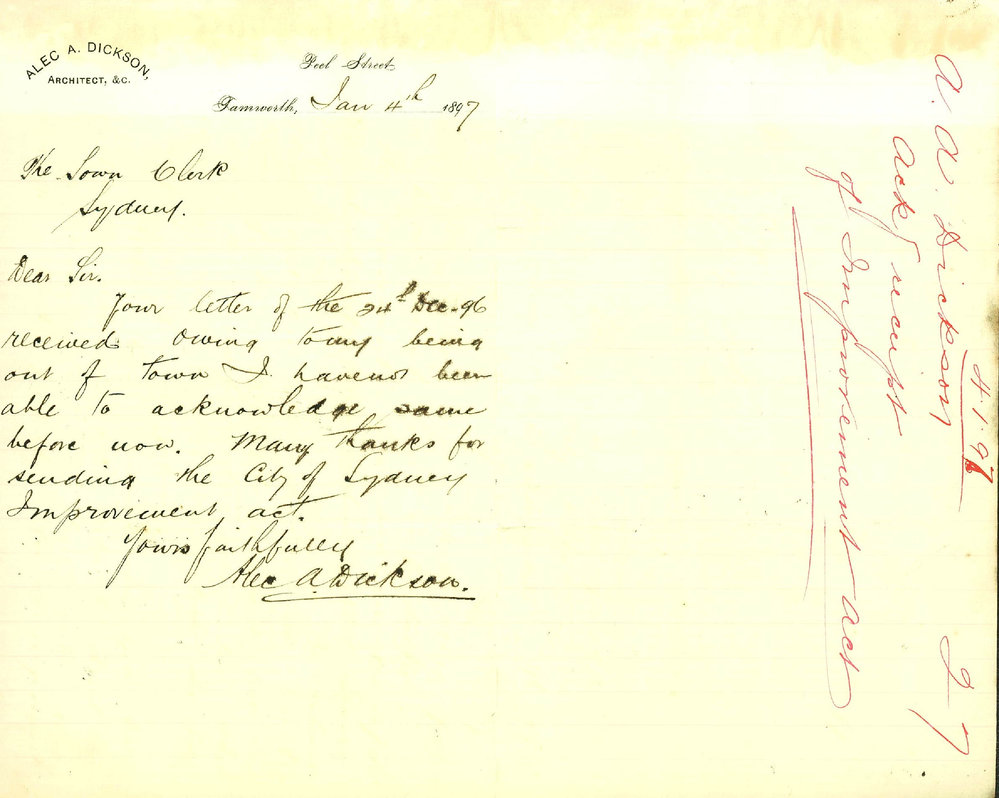 ALEC A. DICKSON,
ARCHITECT, &C.
Peel Street
Tamworth, Jan 4th 1897
The Town Clerk
Sydney.
Dear Sir.
Your letter of the 24th Dec. 96
received owing to my being
out of town I have not been
able to acknowledge same
before now. Many thanks for
sending the City of Sydney
Improvement act.
Yours faithfully
Alec A. Dickson.
A. A. Dickson
4.1.97
Ack g receipt
of Improvement Act